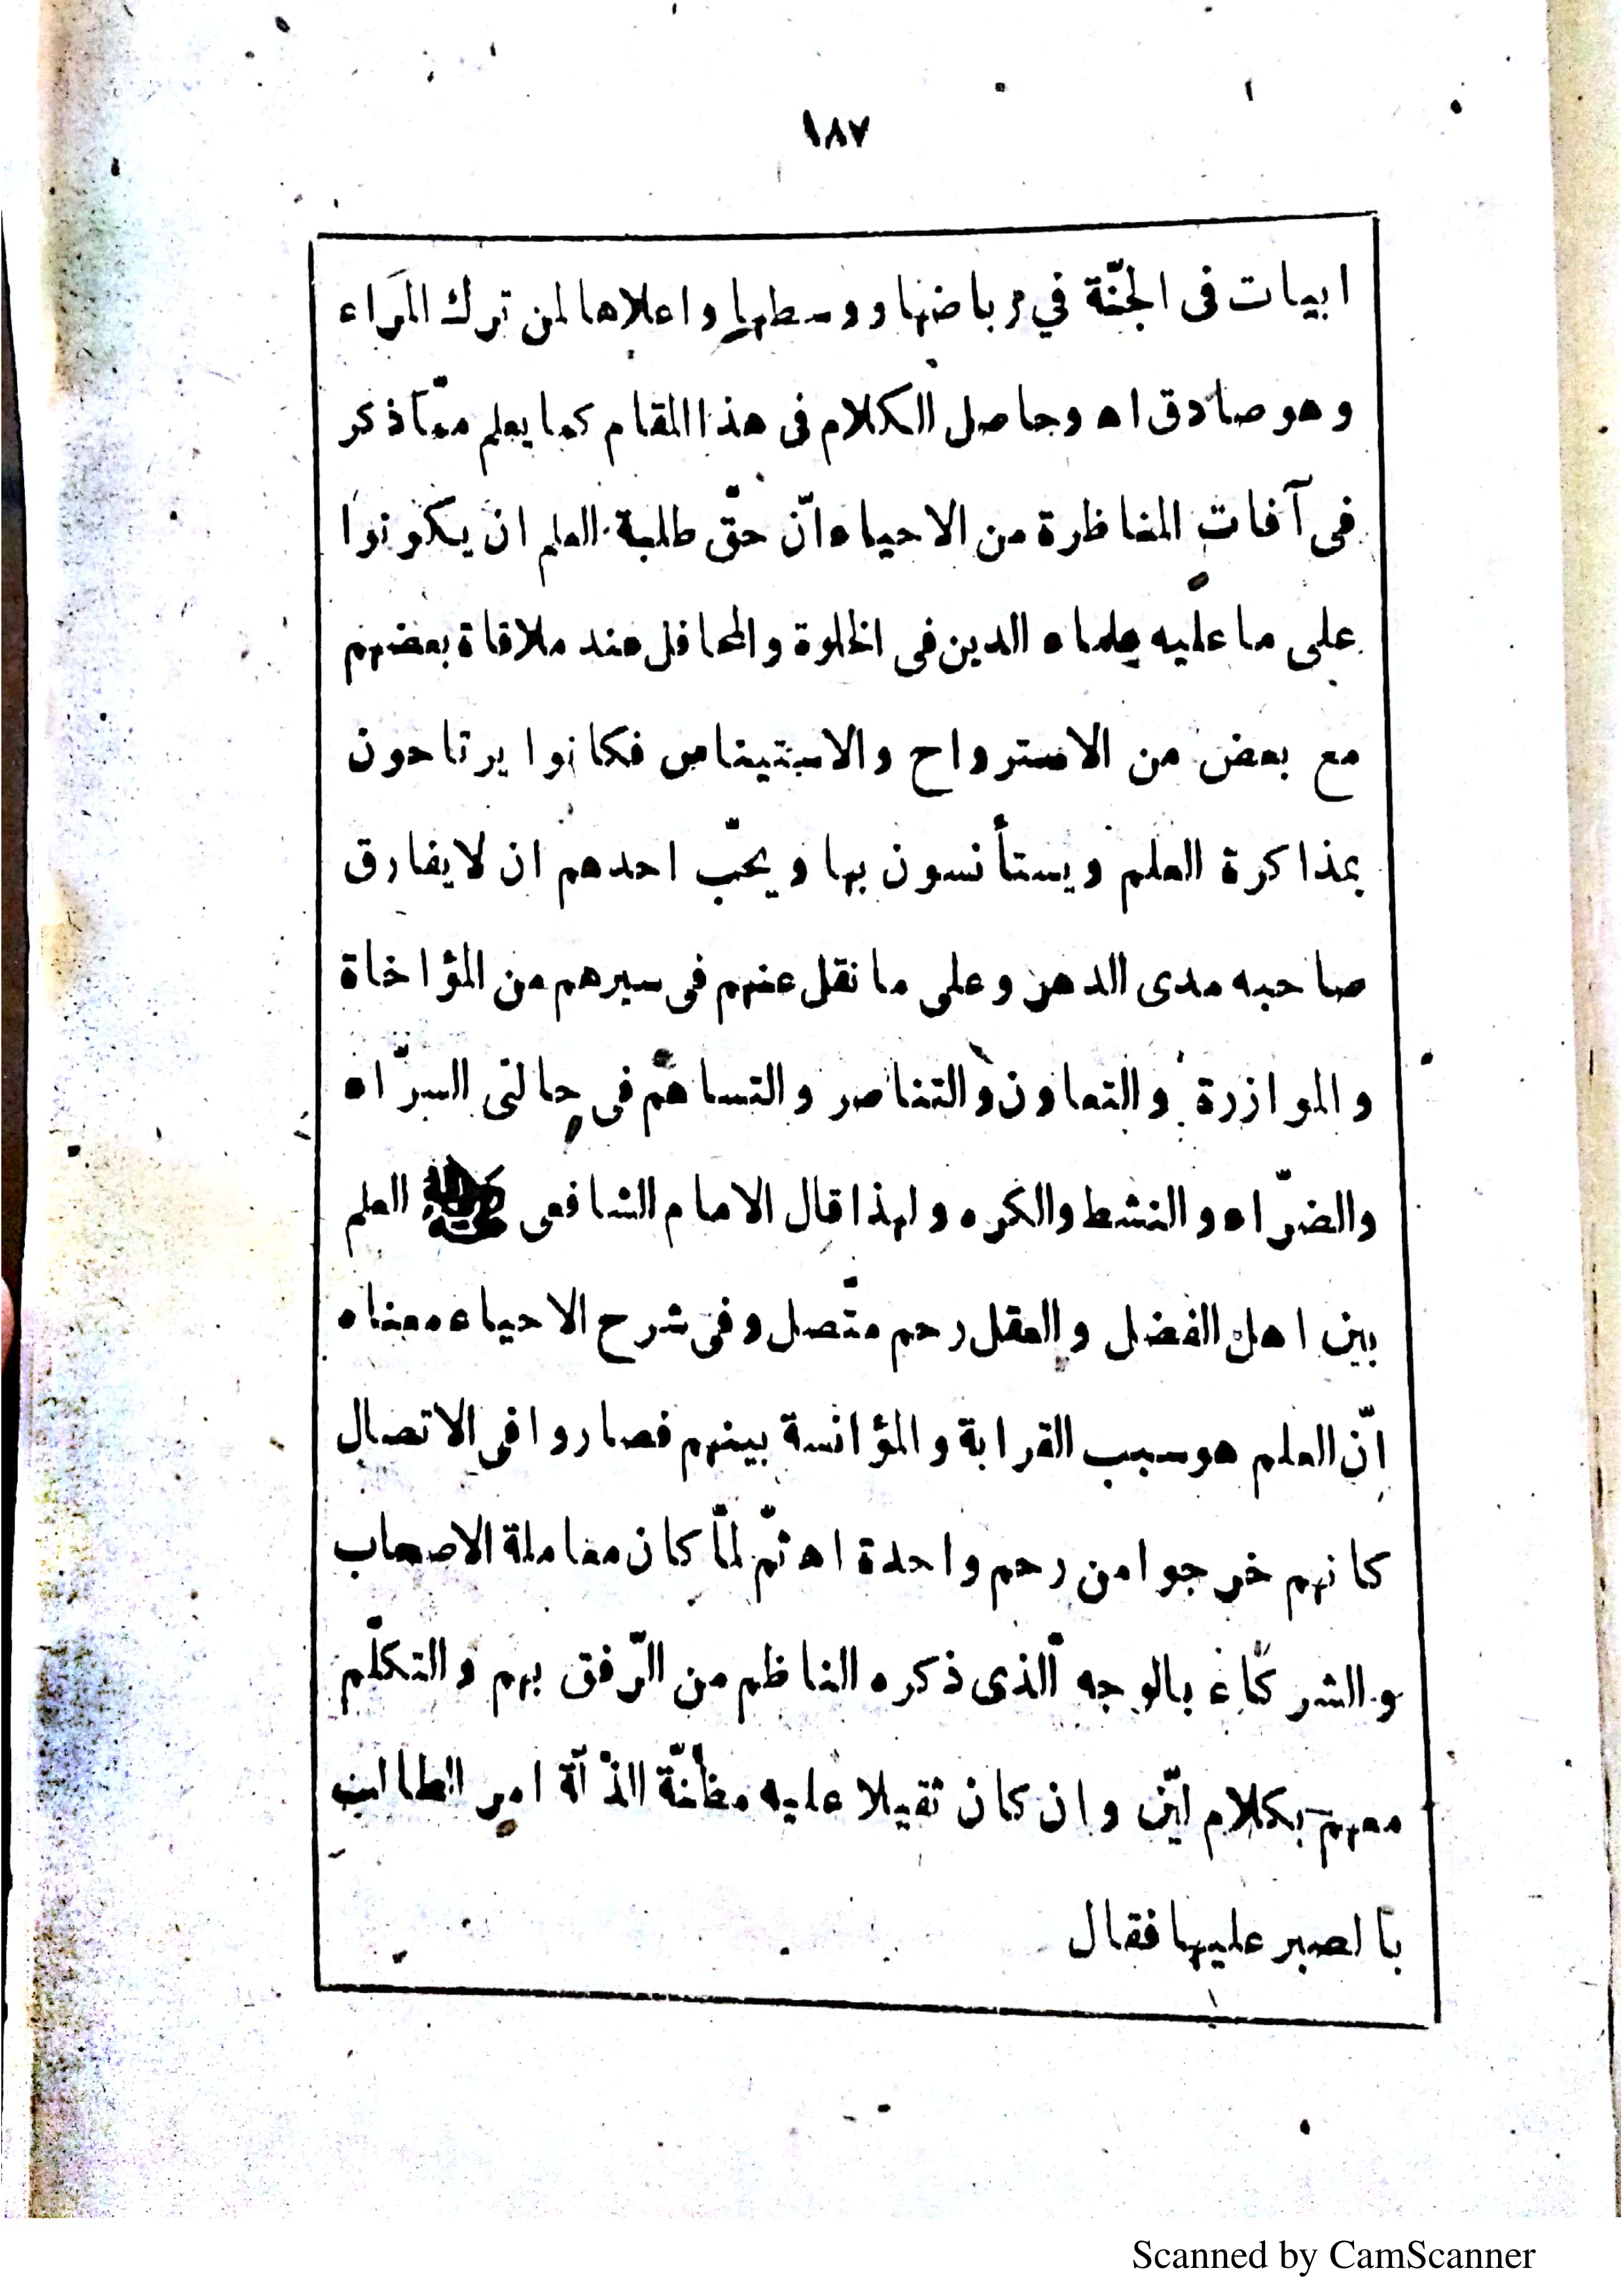 ١٨٧
ابيات فى الجنّة في رباضها ووسطها واعلاها لمن ترك المراء
وهو صادق اه وحاصل الكلام فى هذا المقام كما يعلم ممّا ذكر
فى آفات المناظرة من الاحياء انّ حقّ طلبة العلم ان يكونوا
على ما عليه علماء الدين فى الخلوة والمحافل عند ملاقاة بعضهم
مع بعض من الاسترواح والاستيناس فكانوا يرتاحون
بمذاكرة العلم ويستأنسون بها ويحبّ احدهم ان لا يفارق
صاحبه مدى الدهر وعلى ما نقل عنهم فى سيرهم من المؤاخاة
والموازرة والتعاون والتناصر والتساهم فى حالتى السرّاء
والضرّاء والنشط والكره ولهذا قال الامام الشافعى العلم
بين اهل الفضل والعقل رحم متّصل وفى شرح الاحياء معناه
انّ العلم هو سبب القرابة والمؤانسة بينهم فصاروا فى الاتصال
كانهم خرجوا من رحم واحدة اه ثمّ لمّا كان معاملة الاصحاب
والشركاء بالوجه الّذى ذكره الناظم من الرّفق بهم والتكلّم
معهم بكلام ليّن وان كان ثقيلا عليه مظنّة الذلّة امر الطالب
بالصبر عليها فقال
Scanned by CamScanner